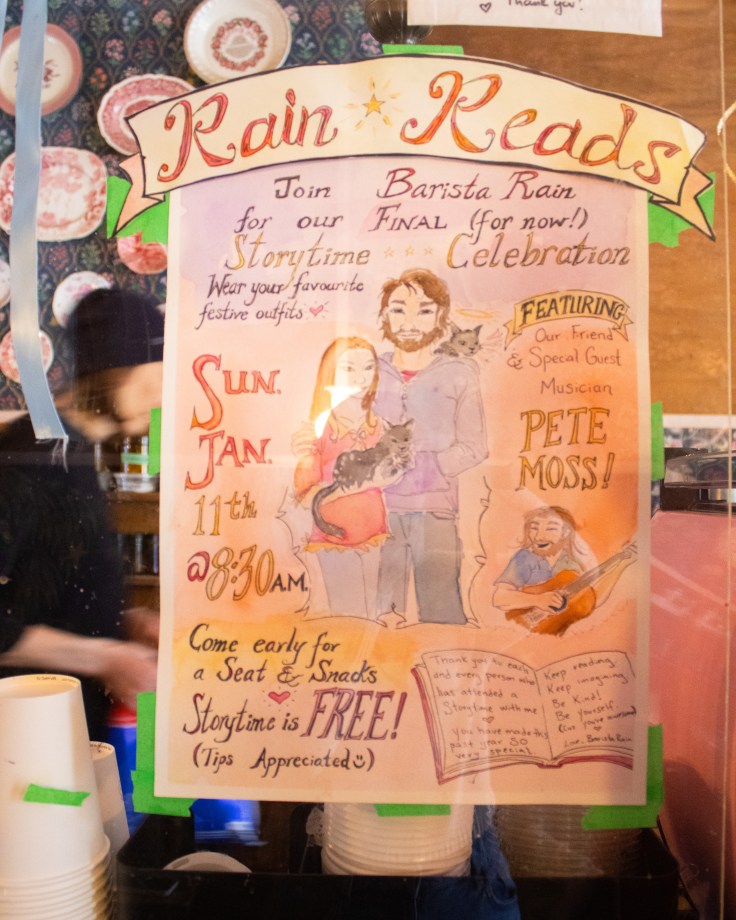 Thank you!
Rain Reads
Join Barista Rain
for our FINAL (for now!)
Storytime Celebration
Wear your favourite
festive outfits
FEATURING
Our Friend
& Special Guest
Musician
PETE
MOSS!
SUN.
JAN.
11th
@8:30 A.M.
Come early for
a Seat & Snacks
Storytime is FREE!
(Tips Appreciated☺)
Thank you to each
and every person who
has attended a
Storytime with me
you have made this
past year SO
very special
Keep reading,
Keep imagining
Be Kind!
Be yourself
(cuz you're awesome)
Love, Barista Rain